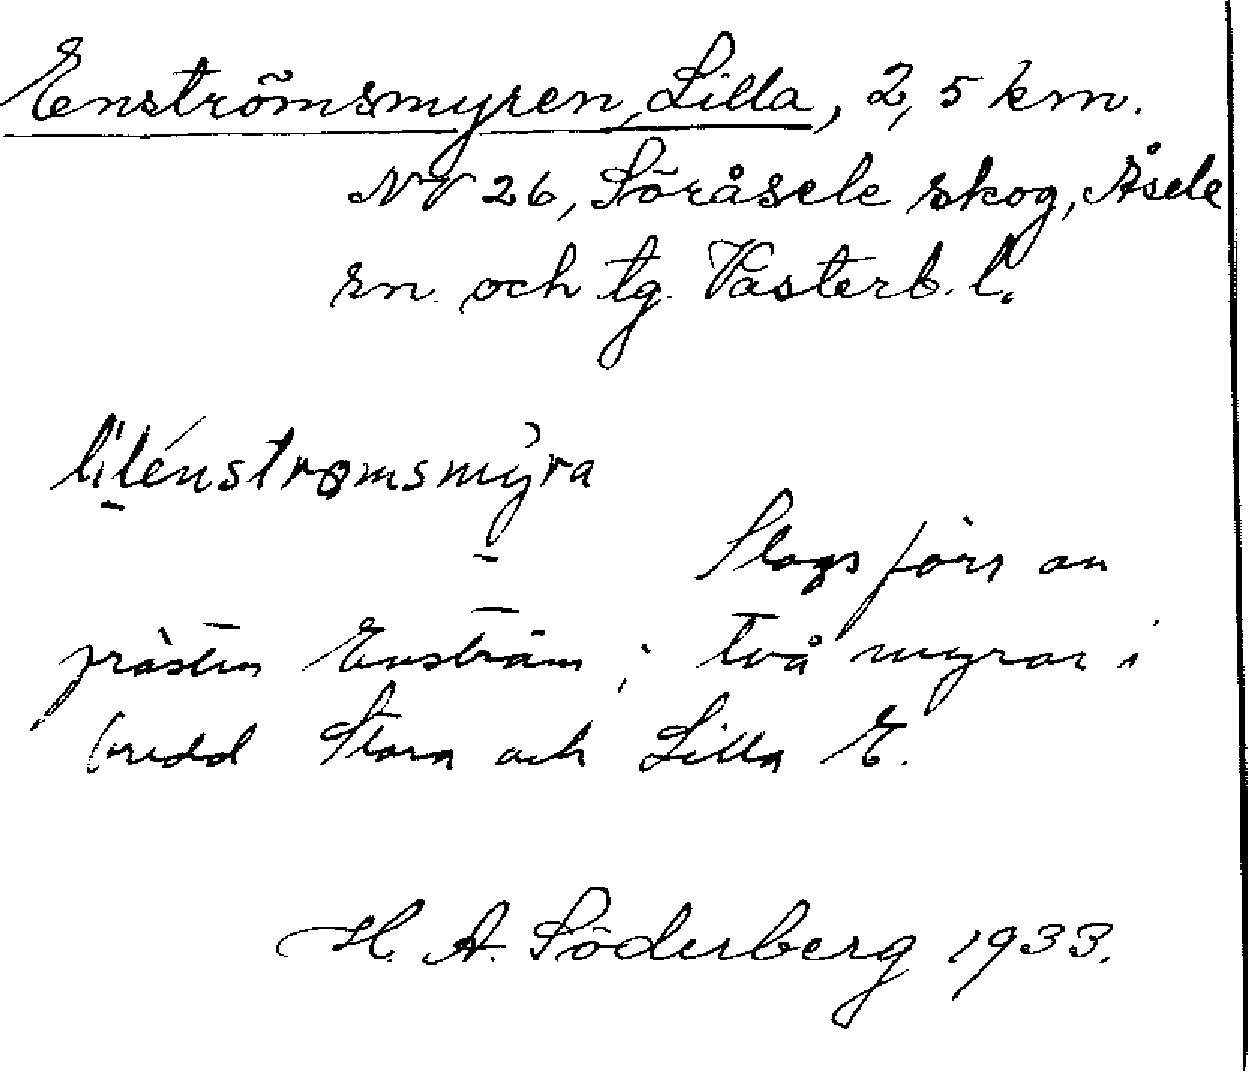 Enströmsmyren, Lilla, 2,5 km.
NV 26, Söråsele skog, Åsele
sn och tg. Västerb. l.
lìlénstrømsmỳra
Slogs förr av
prästen Enström; två myrar i
bredd Stora och Lilla E.
H. A. Söderberg 1933.